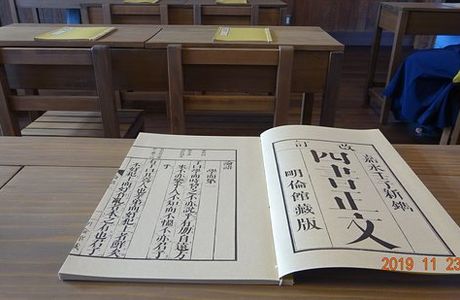 嘉永壬子新鐫
改訂
四書正文
明倫館藏版
論語
學而第一
子曰學而時習之不亦說乎有朋自遠方
來不亦樂乎人不知而不慍不亦君子
乎
有子曰其爲人也孝弟而好犯上者鮮矣
不好犯上而好作亂者未之有也君子
2019 11 23